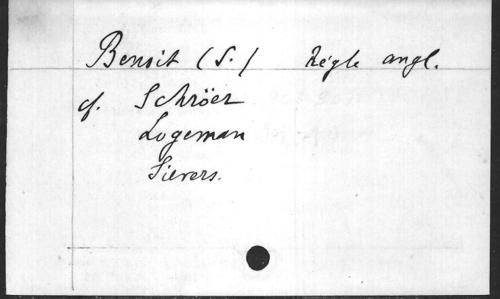 Benoit (S.) Règle angl.
cf. Schröer
Logeman
Sievers.